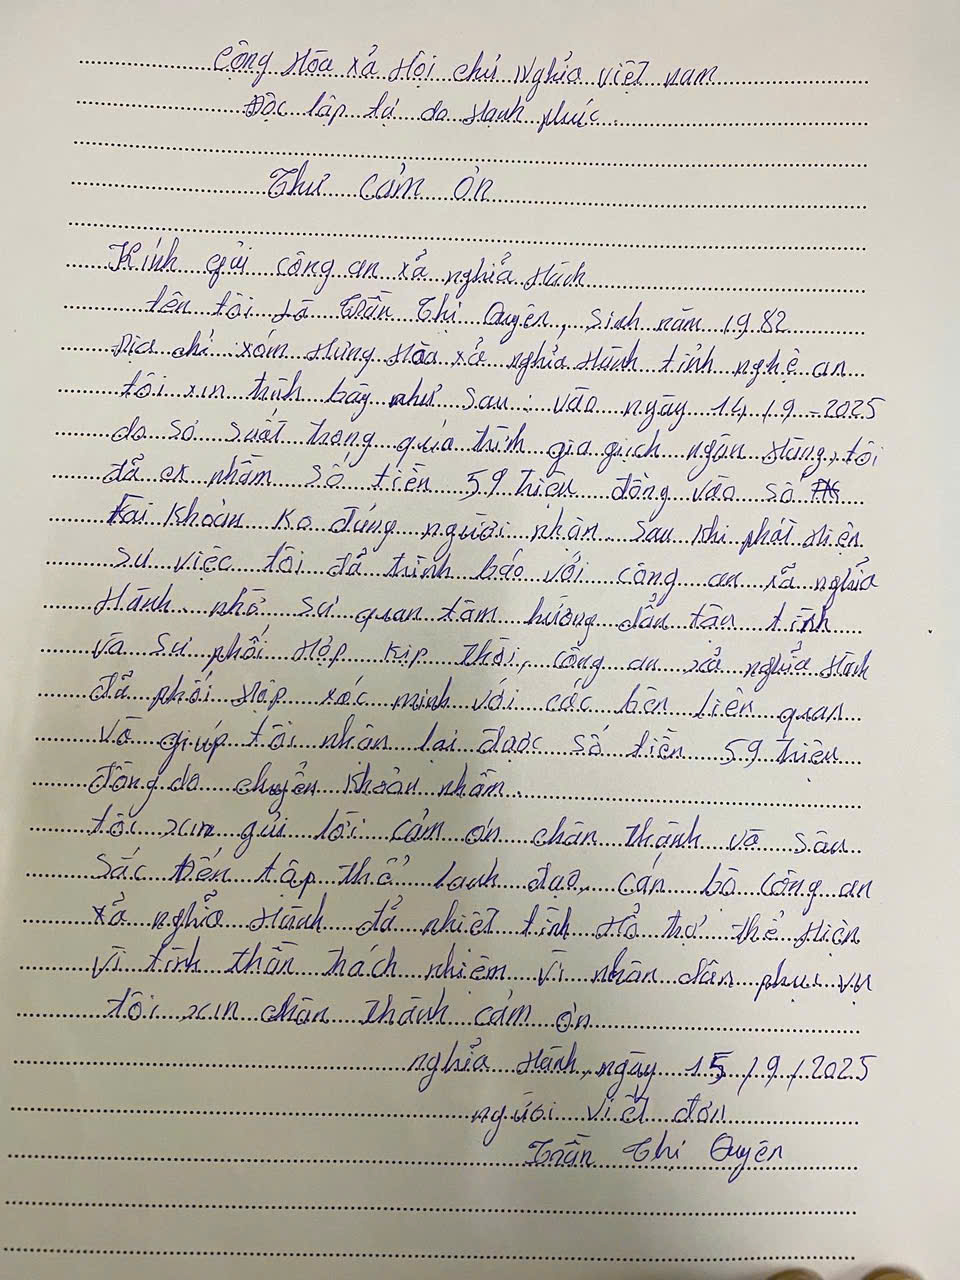 Cộng Hòa xả Hội chủ Nghỉa việt nam
Độc lập tự do Hạnh phúc
Thư Cảm ơn
Kính gửi công an xả nghỉa Hành
tên tôi Là Trần Thị Quyên, Sinh năm 1982
Địa chỉ xóm Hưng Hòa xả nghỉa Hành tỉnh nghệ an
tôi xin trình bày như sau : vào ngày 14/9-2025
do sơ suất trong quá trình gia gịch ngân Hàng, tôi
đả ck nhầm số tiền 59 triệu đồng vào số
tài khoản ko đúng người nhận sau khi phát Hiện
sự việc tôi đả trình báo với công an xả nghỉa
Hành nhờ sự quan tâm hướng dẩn tận tình
và sự phối Hợp kịp thời, công an xả nghỉa Hành
đả phối Hợp xác minh với các bên liên quan
và giúp tôi nhận lại được số tiền 59 triệu
đồng do chuyển khoản nhầm.
tôi xin gửi lời cảm ơn chân thành và sâu
sắc đến tập thể lanh đạo, cán bộ công an
xả nghỉa Hành đả nhiệt tình Hổ trợ thể Hiện
vì tinh thần trách nhiệm vì nhân dân phục vụ
tôi xin chân thành cảm ơn
nghỉa Hành, ngày 15/9/2025
người viết đơn
Trần Thị Quyên